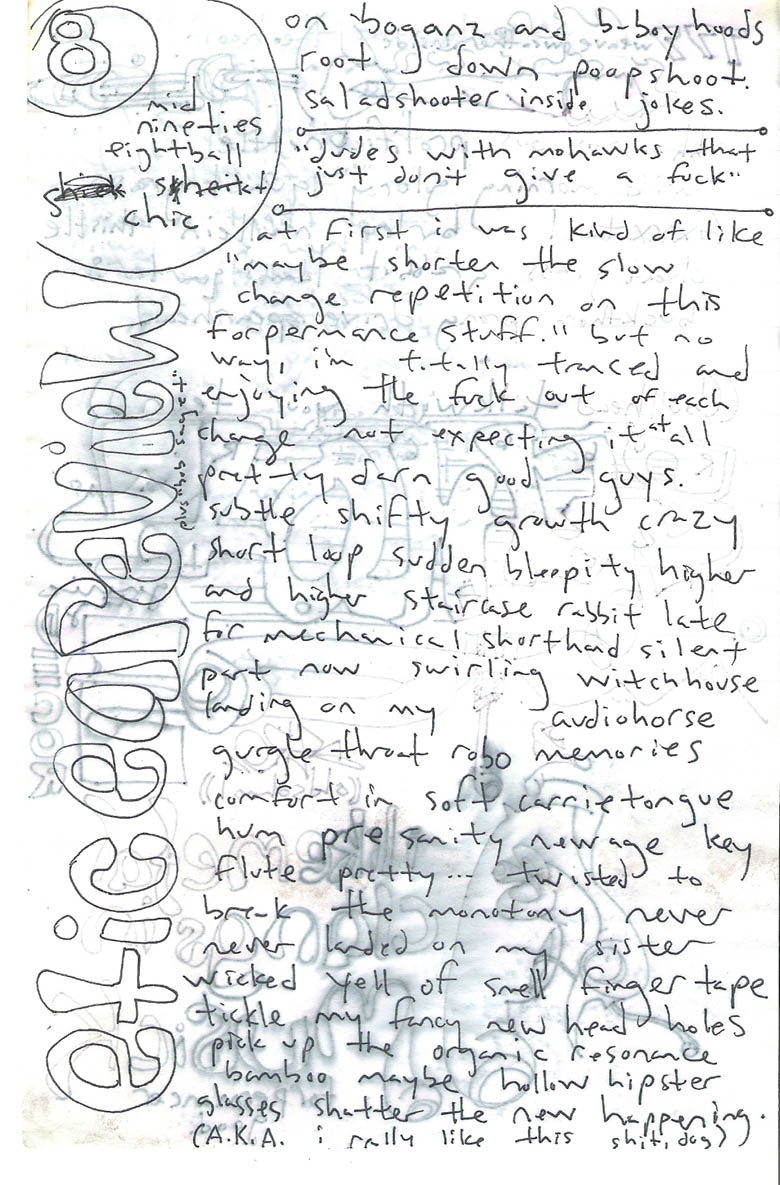 8
mid
nineties
eightball
chic
on boganz and b-boy hoods
root down poopshoot.
saladshooter inside jokes.
"dudes with mohawks that
just don't give a fuck"
at first i was kind of like
"maybe shorten the slow
change repetition on this
forpermance stuff." but no
way, i'm totally tranced and
enjoying the fuck out of each
change not expecting it at all
pretty darn good guys.
subtle shifty growth crazy
short loop sudden bleepity higher
and higher staircase rabbit late
for mechanical shorthand silent
part now swirling witchhouse
landing on my audiohorse
gurgle throat robo memories
comfort in soft carrietongue
hum pre sanity new age key
flute pretty... twisted to
break the monotony never
never landed on my sister
wicked yell of smell finger tape
tickle my fancy new head holes
pick up the organic resonance
bamboo maybe hollow hipster
glasses shatter the new happening.
(A.K.A. i rally like this shit, dog)
etic eaReview